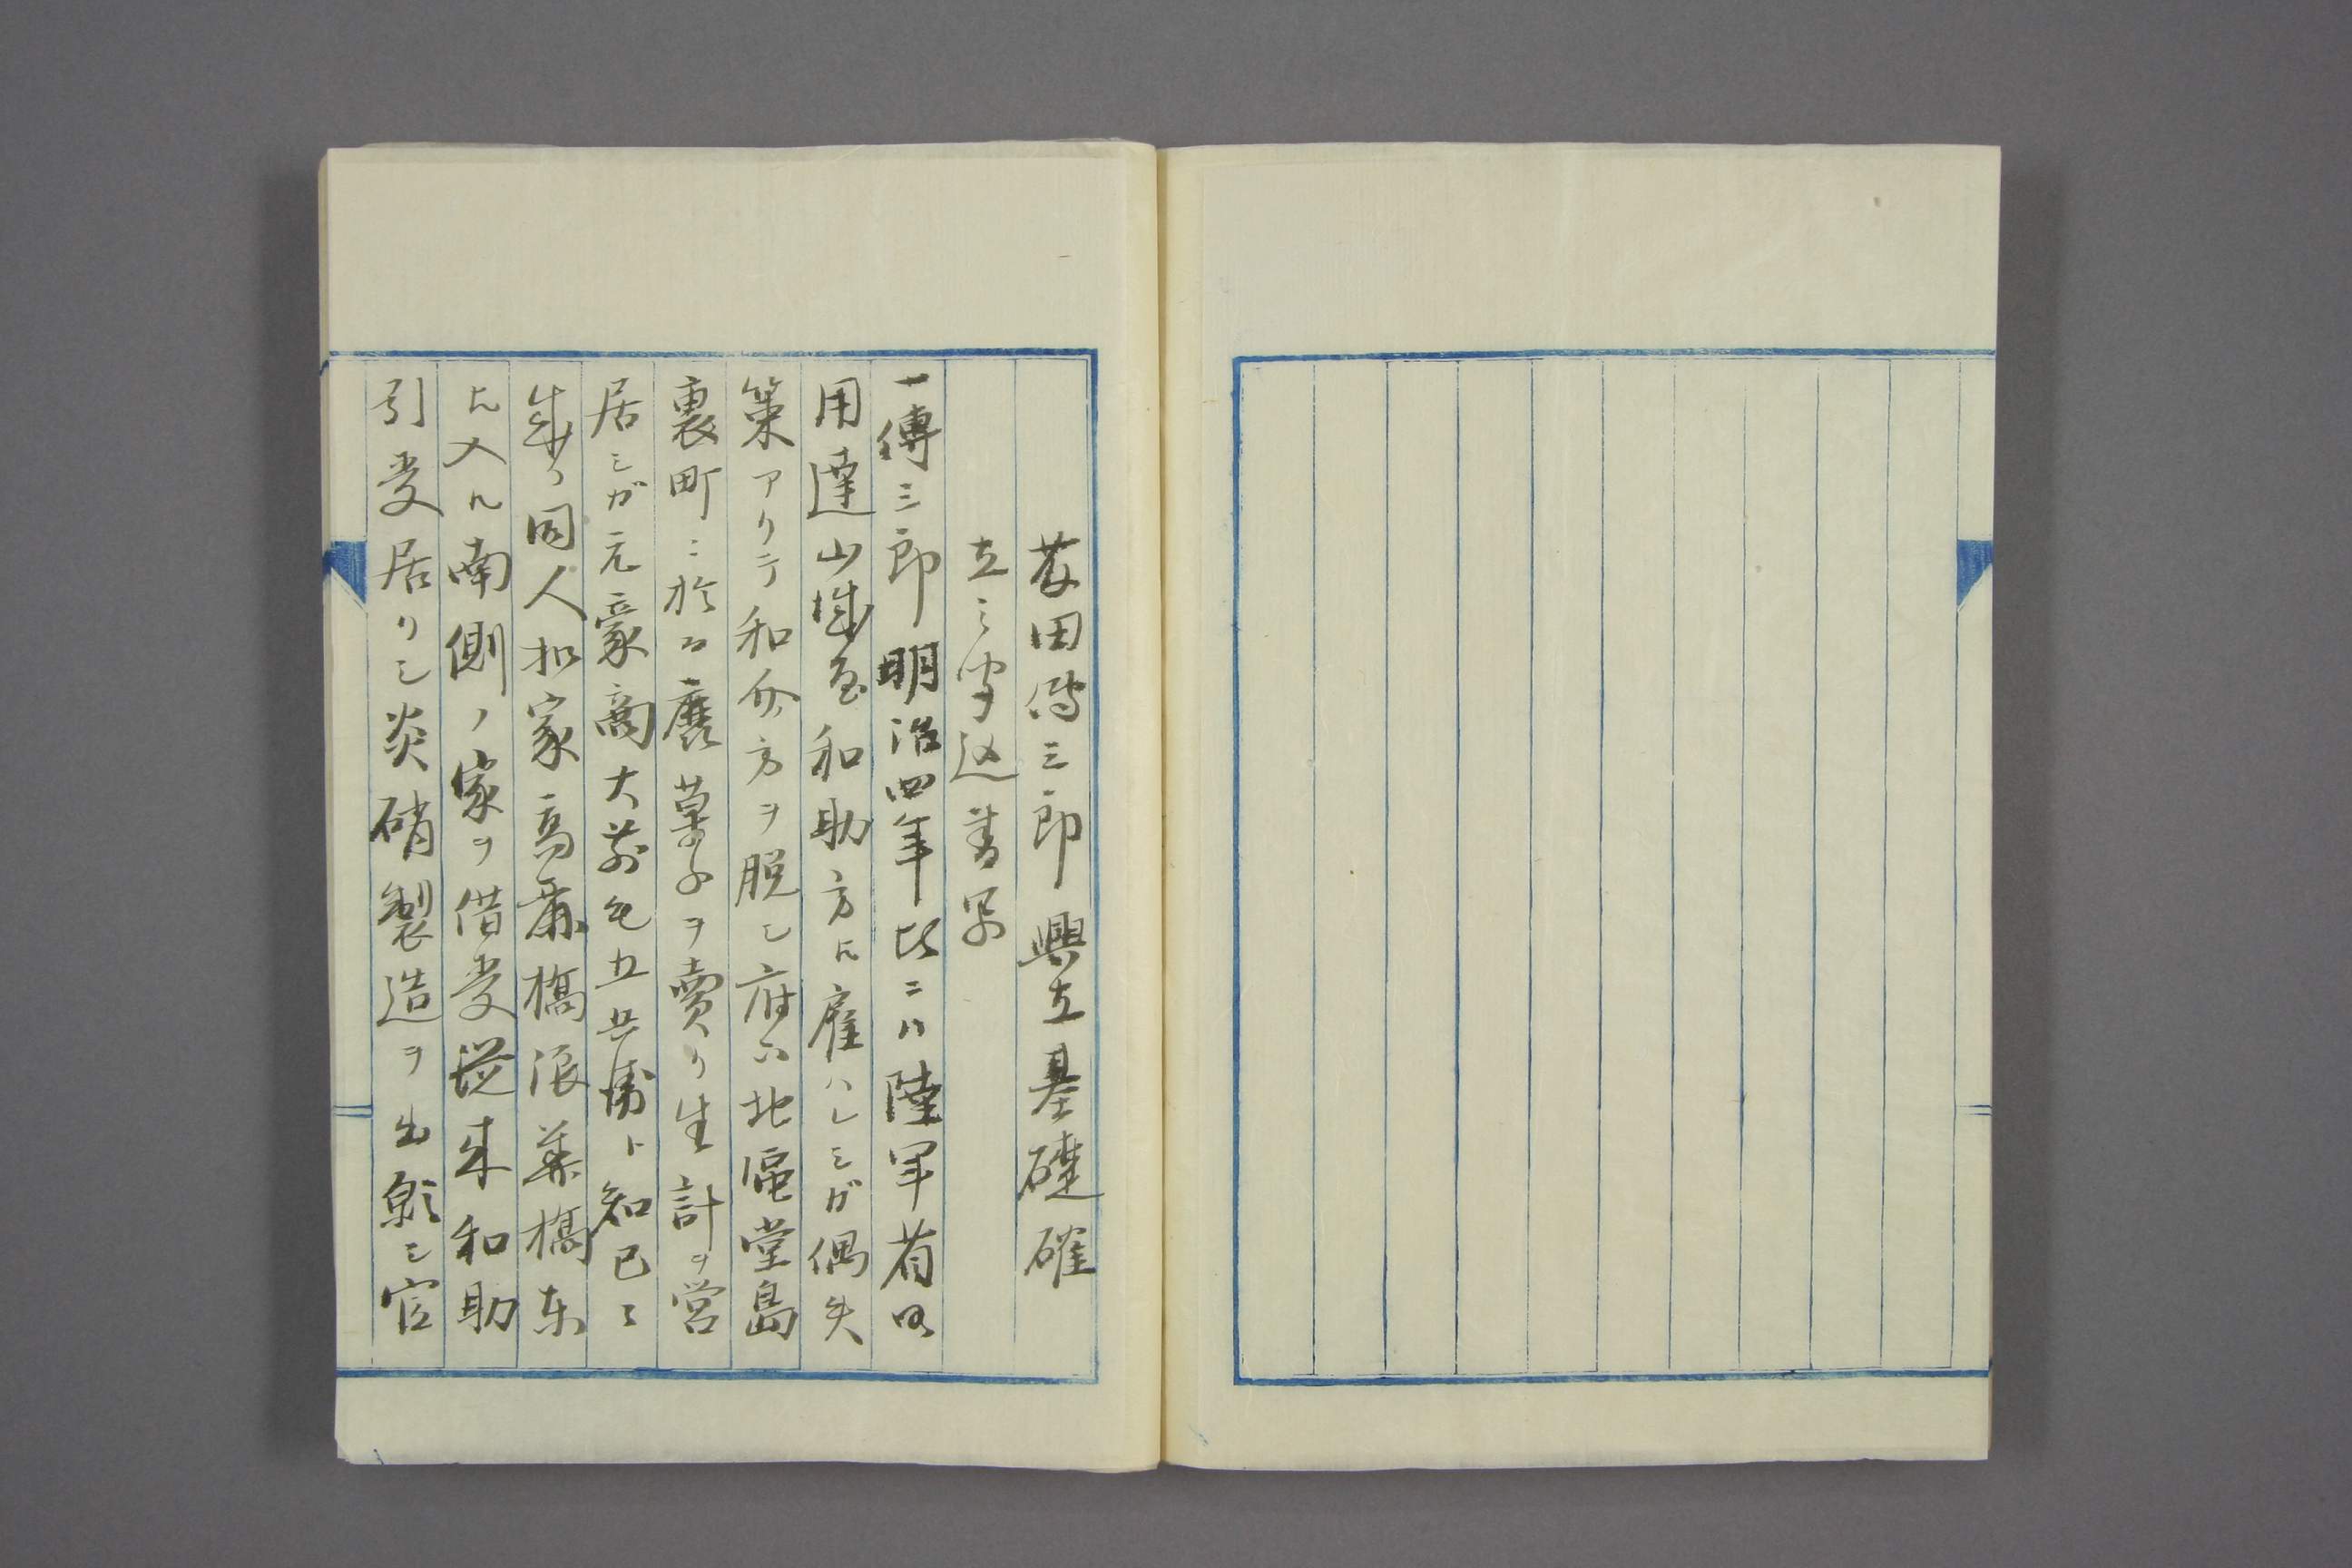 藤田傳三郎興立基礎確
立之聞込書写
一傳三郎明治四年比ニハ陸軍省御
用達山城屋和助方ニ雇ハレシガ偶失
策アリテ和介方ヲ脱シ府下北區堂島
裏町ニ於而麁菓子ヲ賣リ生計ヲ営
居シガ元豪商大前屯五兵衛ト知己ニ
成リ同人扣家高麗橋浪華橋東
ヘ入ル南側ノ家ヲ借受従来和助
引受居リシ炎硝製造ヲ出願シ官